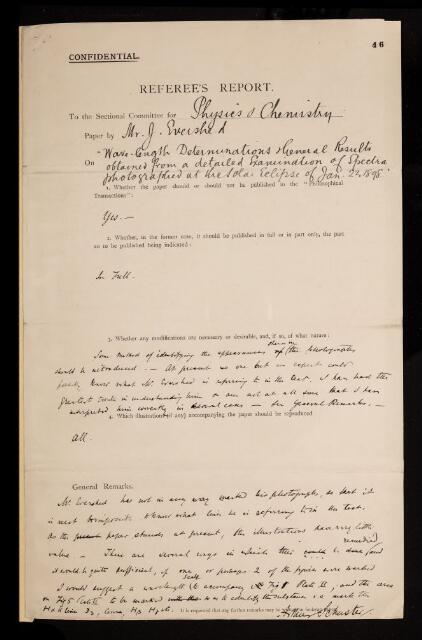 46
CONFIDENTIAL.
REFEREE'S REPORT.
To the Sectional Committee for Physics & Chemistry
Paper by Mr. J. Evershed
"Wave-length Determinations & General Results
On obtained from a detailed Examination of Spectra
photographed at the Solar Eclipse of Jan. 22, 1898"
1. Whether the paper should or should not be published in the "Philosophical
Transactions":
Yes.—
2. Whether, in the former case, it should be published in full or in part only, the part
not to be published being indicated:
In Full.
3. Whether any modifications are necessary or desirable, and, if so, of what nature:
Some method of identifying the appearances shown on the photographs
should be introduced. — At present no one but an expert could
know what Mr. Evershed is referring to in the text. I have had the
greatest trouble in understanding him & am not at all sure that I have
interpreted him correctly in several cases — See General Remarks. —
4. Which illustrations (if any) accompanying the paper should be reproduced
All.
General Remarks.
Mr. Evershed has not in any way marked his photographs, so that it
is most to know what line he is referring to in the text.
As the paper stands at present, the illustrations have very little
value. — There are several ways in which this could be remedied and
it would be quite sufficient, if one or perhaps 2 of the figures were marked
I would suggest a wavelength scale to accompany Fig 8 Plate II, and the arcs
on Fig 5 to be marked to identify the substance i.e. mark the
H & K line
It is requested that any further remarks may be
Arthur Schuster